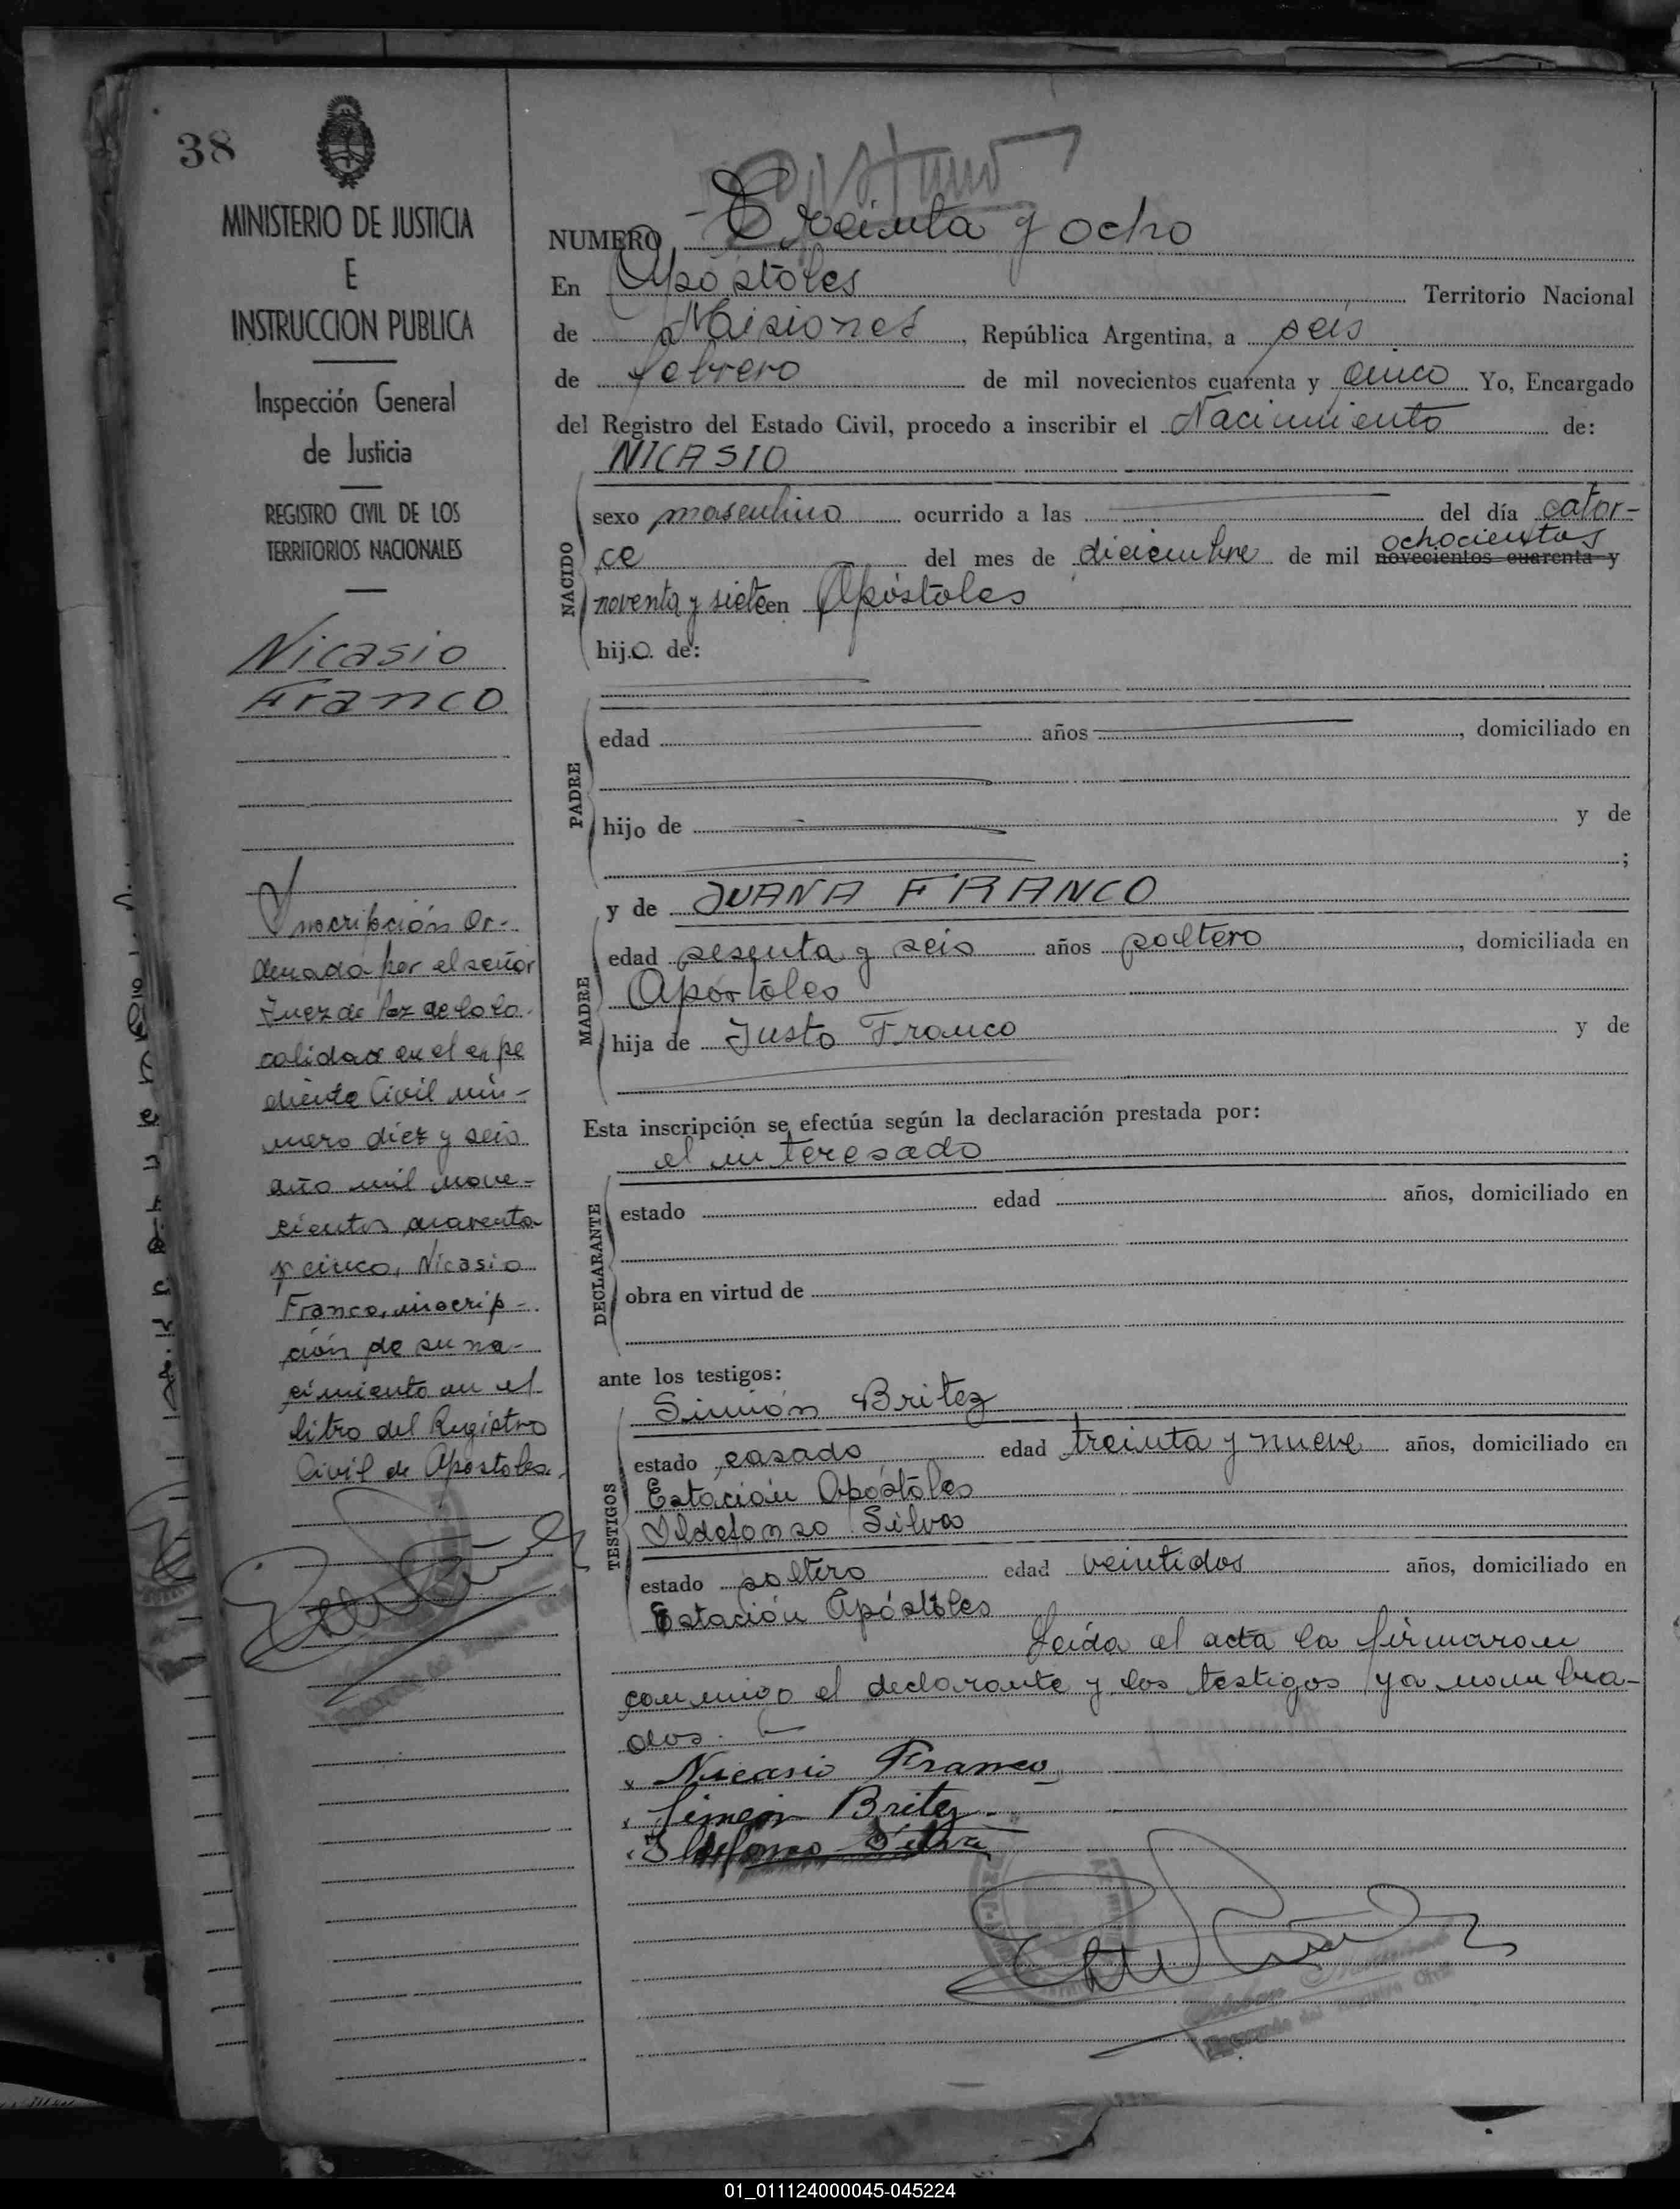 38
MINISTERIO DE JUSTICIA
E
INSTRUCCION PUBLICA
Inspección General
de Justicia
REGISTRO CIVIL DE LOS
TERRITORIOS NACIONALES
Nicasio
Franco
Inscripción or-
denada por el señor
Juez de Paz de la lo-
calidad en el expe
diente Civil nú-
mero diez y seis
año mil nove-
cientos cuarenta
y cinco, Nicasio
Franco, inscrip-
ción de su na-
cimiento en el
libro del Registro
Civil de Apóstoles.
NUMERO Treinta y ocho
En Apóstoles Territorio Nacional
de Misiones, República Argentina, a seis
de febrero de mil novecientos cuarenta y cinco Yo, Encargado
del Registro del Estado Civil, procedo a inscribir el Nacimiento de:
NICASIO
NACIDO
sexo masculino ocurrido a las del día cator-
ochocientos
ce del mes de diciembre de mil novecientos cuarenta y
noventa y siete en Apóstoles
hijo de:
PADRE
edad años, domiciliado en
hijo de y de
;
MADRE
y de JUANA FRANCO
edad sesenta y seis años soltero, domiciliada en
Apóstoles
hija de Justo Franco y de
Esta inscripción se efectúa según la declaración prestada por:
el interesado
DECLARANTE
estado edad años, domiciliado en
obra en virtud de
ante los testigos:
TESTIGOS
Simón Britez
estado casado edad treinta y nueve años, domiciliado en
Estación Apóstoles
Ildefonso Silva
estado soltero edad veintidos años, domiciliado en
Estación Apóstoles
Leída el acta la firmaron
conmigo el declarante y los testigos ya nombra-
dos.
x Nicasio Franco
x Simeón Britez
Ildefonso Silva
01_011124000045-045224